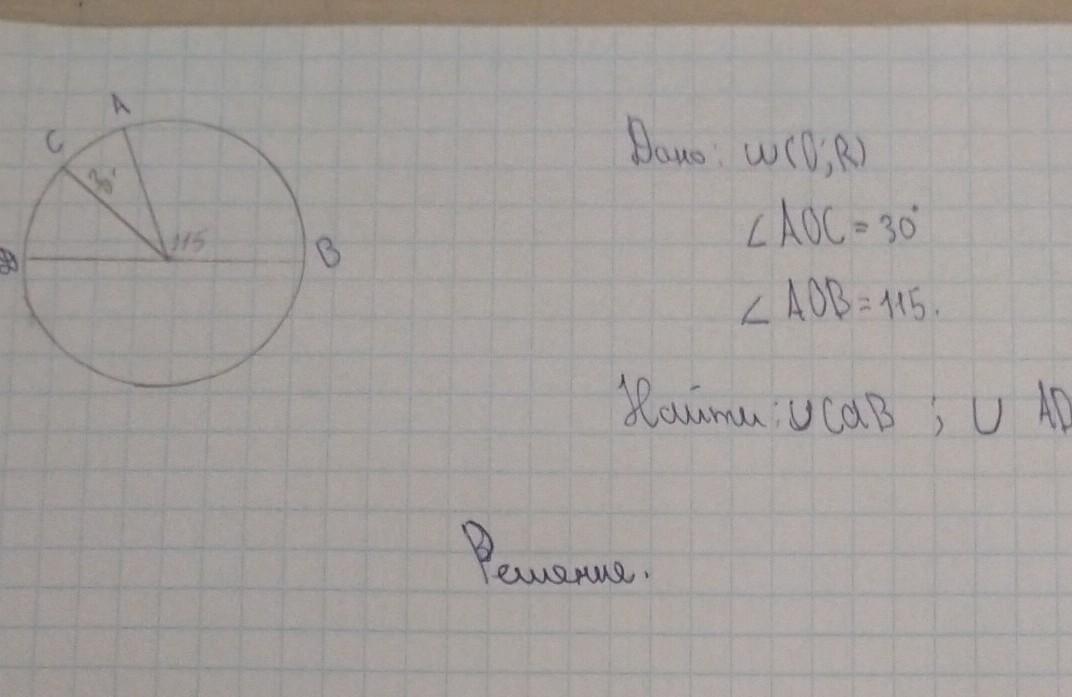 A
C
30°
115
B
Дано: w(O;R)
∠AOC = 30°
∠AOB = 115.
Найти: ∪CaB ; ∪ AD
Решение.